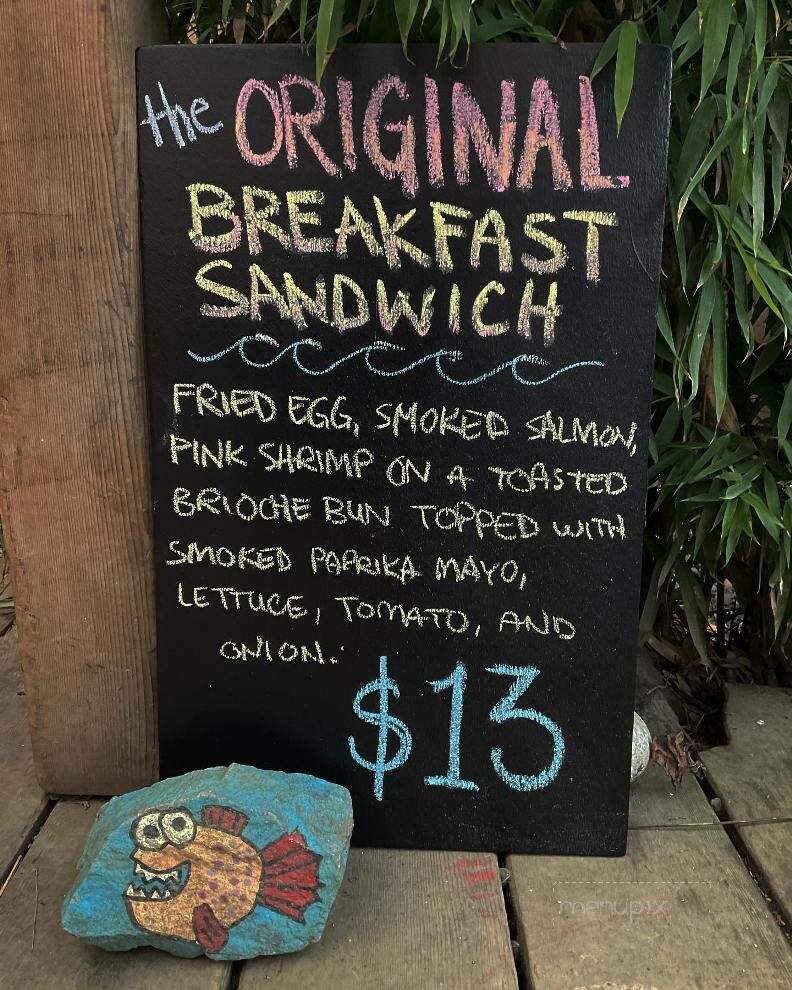 the ORIGINAL
BREAKFAST
SANDWICH
FRIED EGG, SMOKED SALMON,
PINK SHRIMP ON A TOASTED
BRIOCHE BUN TOPPED WITH
SMOKED PAPRIKA MAYO,
LETTUCE, TOMATO, AND
ONION.
$13
menupix